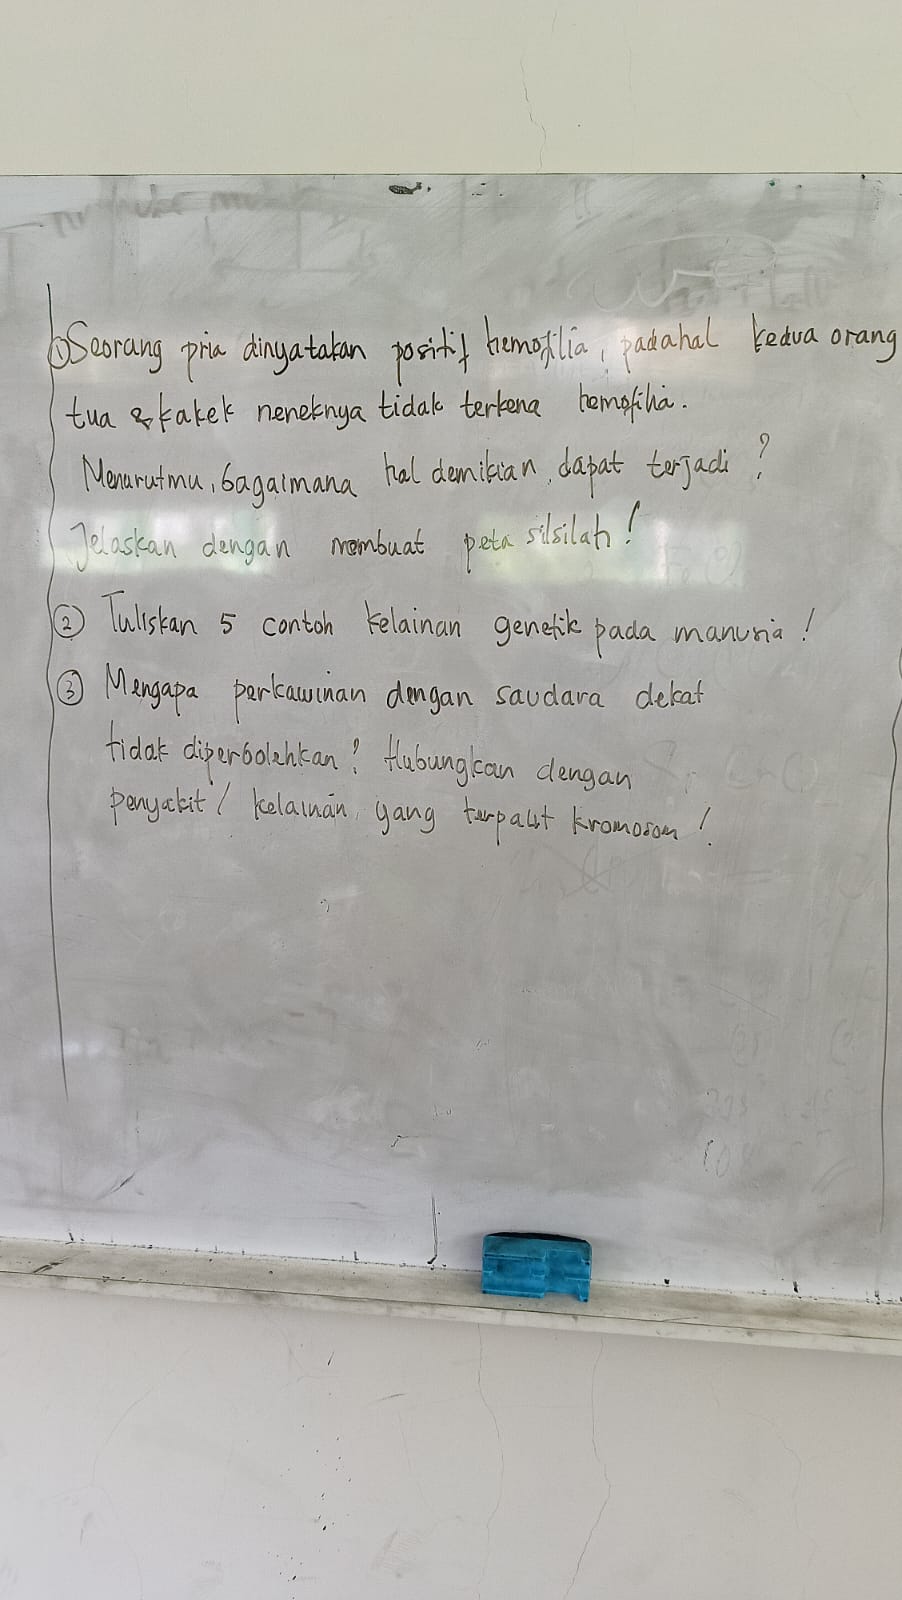 ① Seorang pria dinyatakan positif hemofilia, padahal kedua orang
tua & kakek neneknya tidak terkena hemofilia.
Menurutmu, bagaimana hal demikian dapat terjadi?
Jelaskan dengan membuat peta silsilah!
② Tuliskan 5 contoh kelainan genetik pada manusia!
③ Mengapa perkawinan dengan saudara dekat
tidak diperbolehkan? Hubungkan dengan
penyakit / kelainan yang terpaut kromosom!